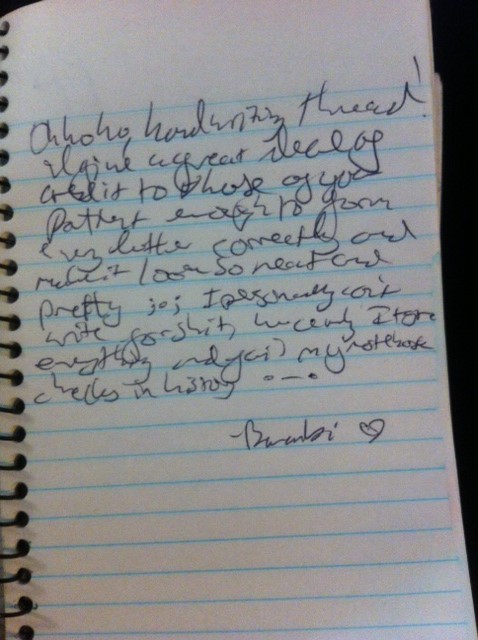 Ohhoho, handwriting thread!
I give a great deal of
credit to those of you
patient enough to form
every letter correctly and
make it look so neat and
pretty ;o; I personally can't
write for shit, I
everything and my notebook
checks in history •—•
♡